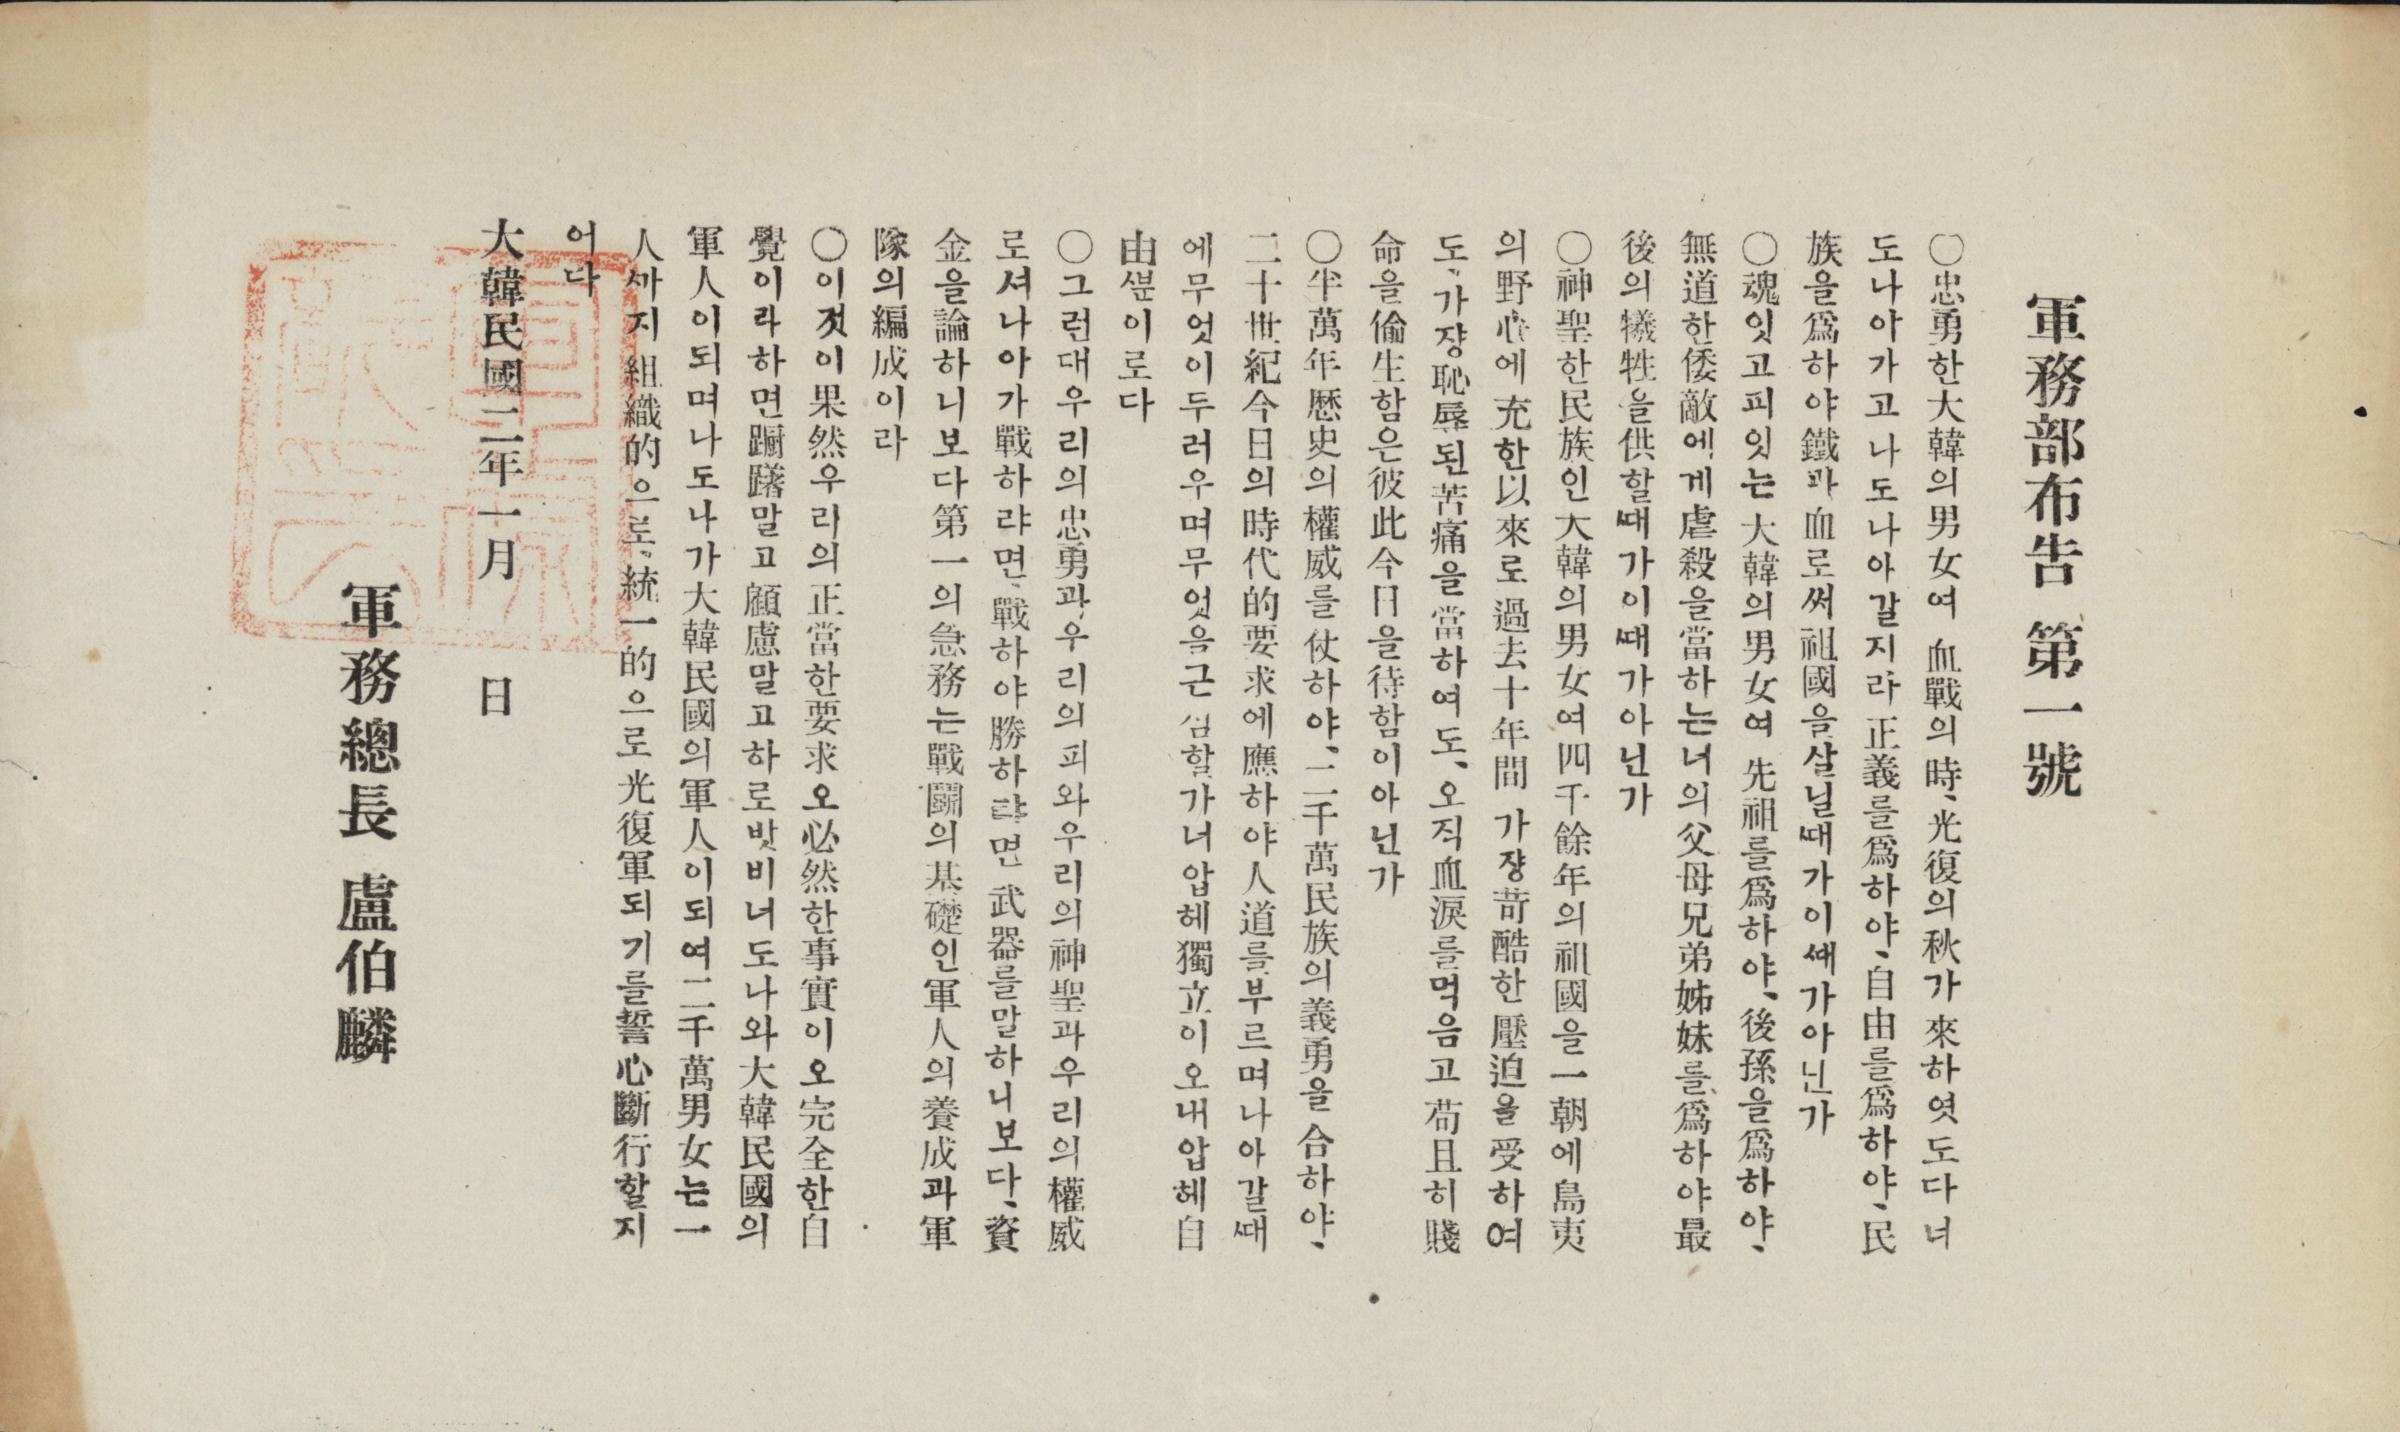 軍務部布告 第一號
〇忠勇한大韓의男女여 血戰의時、光復의秋가來하엿도다너
도나아가고나도나아갈지라正義를爲하야、自由를爲하야、民
族을爲하야鐵과血로써祖國을살닐때가이때가아닌가
〇魂잇고피잇는大韓의男女여 先祖를爲하야、後孫을爲하야、
無道한倭敵에게虐殺을當하는너의父母兄弟姊妹를爲하야最
後의犧牲을供할때가이때가아닌가
〇神聖한民族인大韓의男女여四千餘年의祖國을一朝에島夷
의野心에充한以來로過去十年間 가쟝苛酷한壓迫을受하여
도、가쟝恥辱된苦痛을當하여도、오직血淚를먹음고苟且히賤
命을偸生함은彼此今日을待함이아닌가
〇半萬年歷史의權威를仗하야、二千萬民族의義勇을合하야、
二十世紀今日의時代的要求에應하야人道를부르며나아갈때
에무엇이두러우며무엇을근심할가너압헤獨立이오내압헤自
由뿐이로다
〇그런대우리의忠勇과우리의피와우리의神聖과우리의權威
로셔나아가戰하랴면、戰하야勝하랴면武器를말하니보다、資
金을論하니보다第一의急務는戰鬪의基礎인軍人의養成과軍
隊의編成이라
〇이것이果然우리의正當한要求오必然한事實이오完全한自
覺이라하면躕躇말고顧慮말고하로밧비너도나와大韓民國의
軍人이되며나도나가大韓民國의軍人이되여二千萬男女는一
人까지組織的으로、統一的으로光復軍되기를誓心斷行할지
어다
大韓民國二年一月 日
軍務總長 盧伯麟